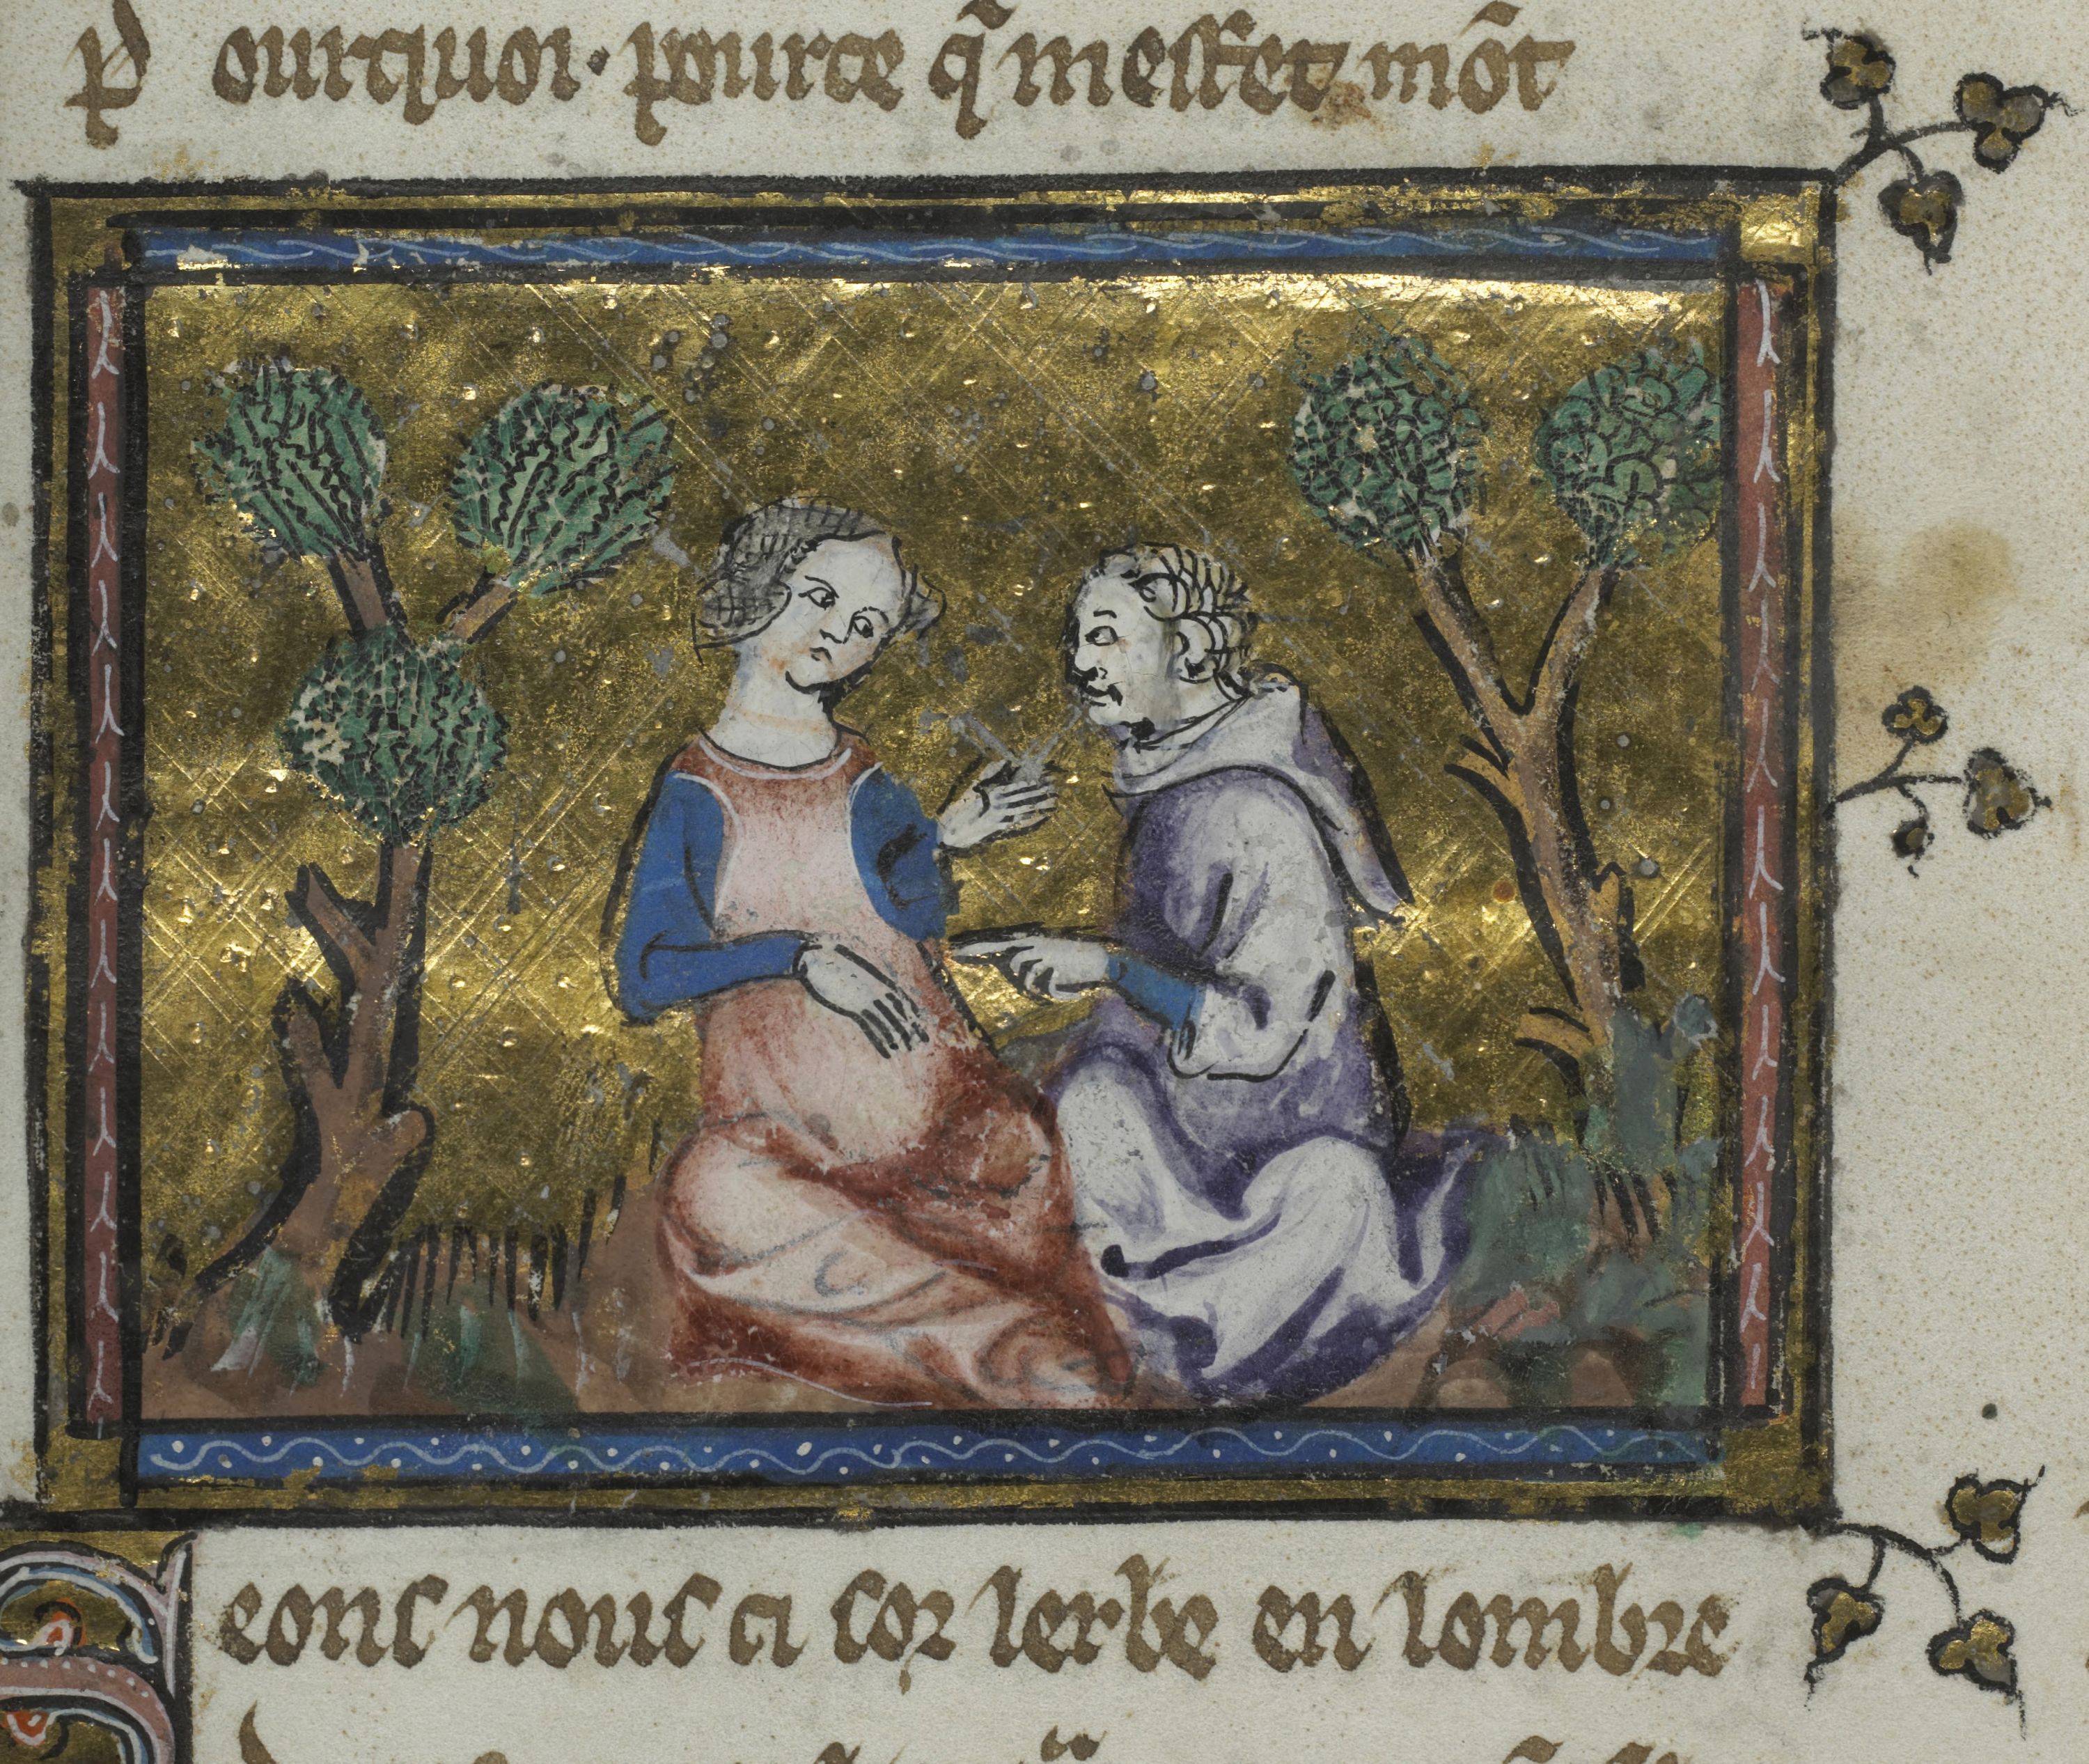 P ourquoi · pource q̃ mesftet mõt
Seons nous ci sor lerbe en lombre